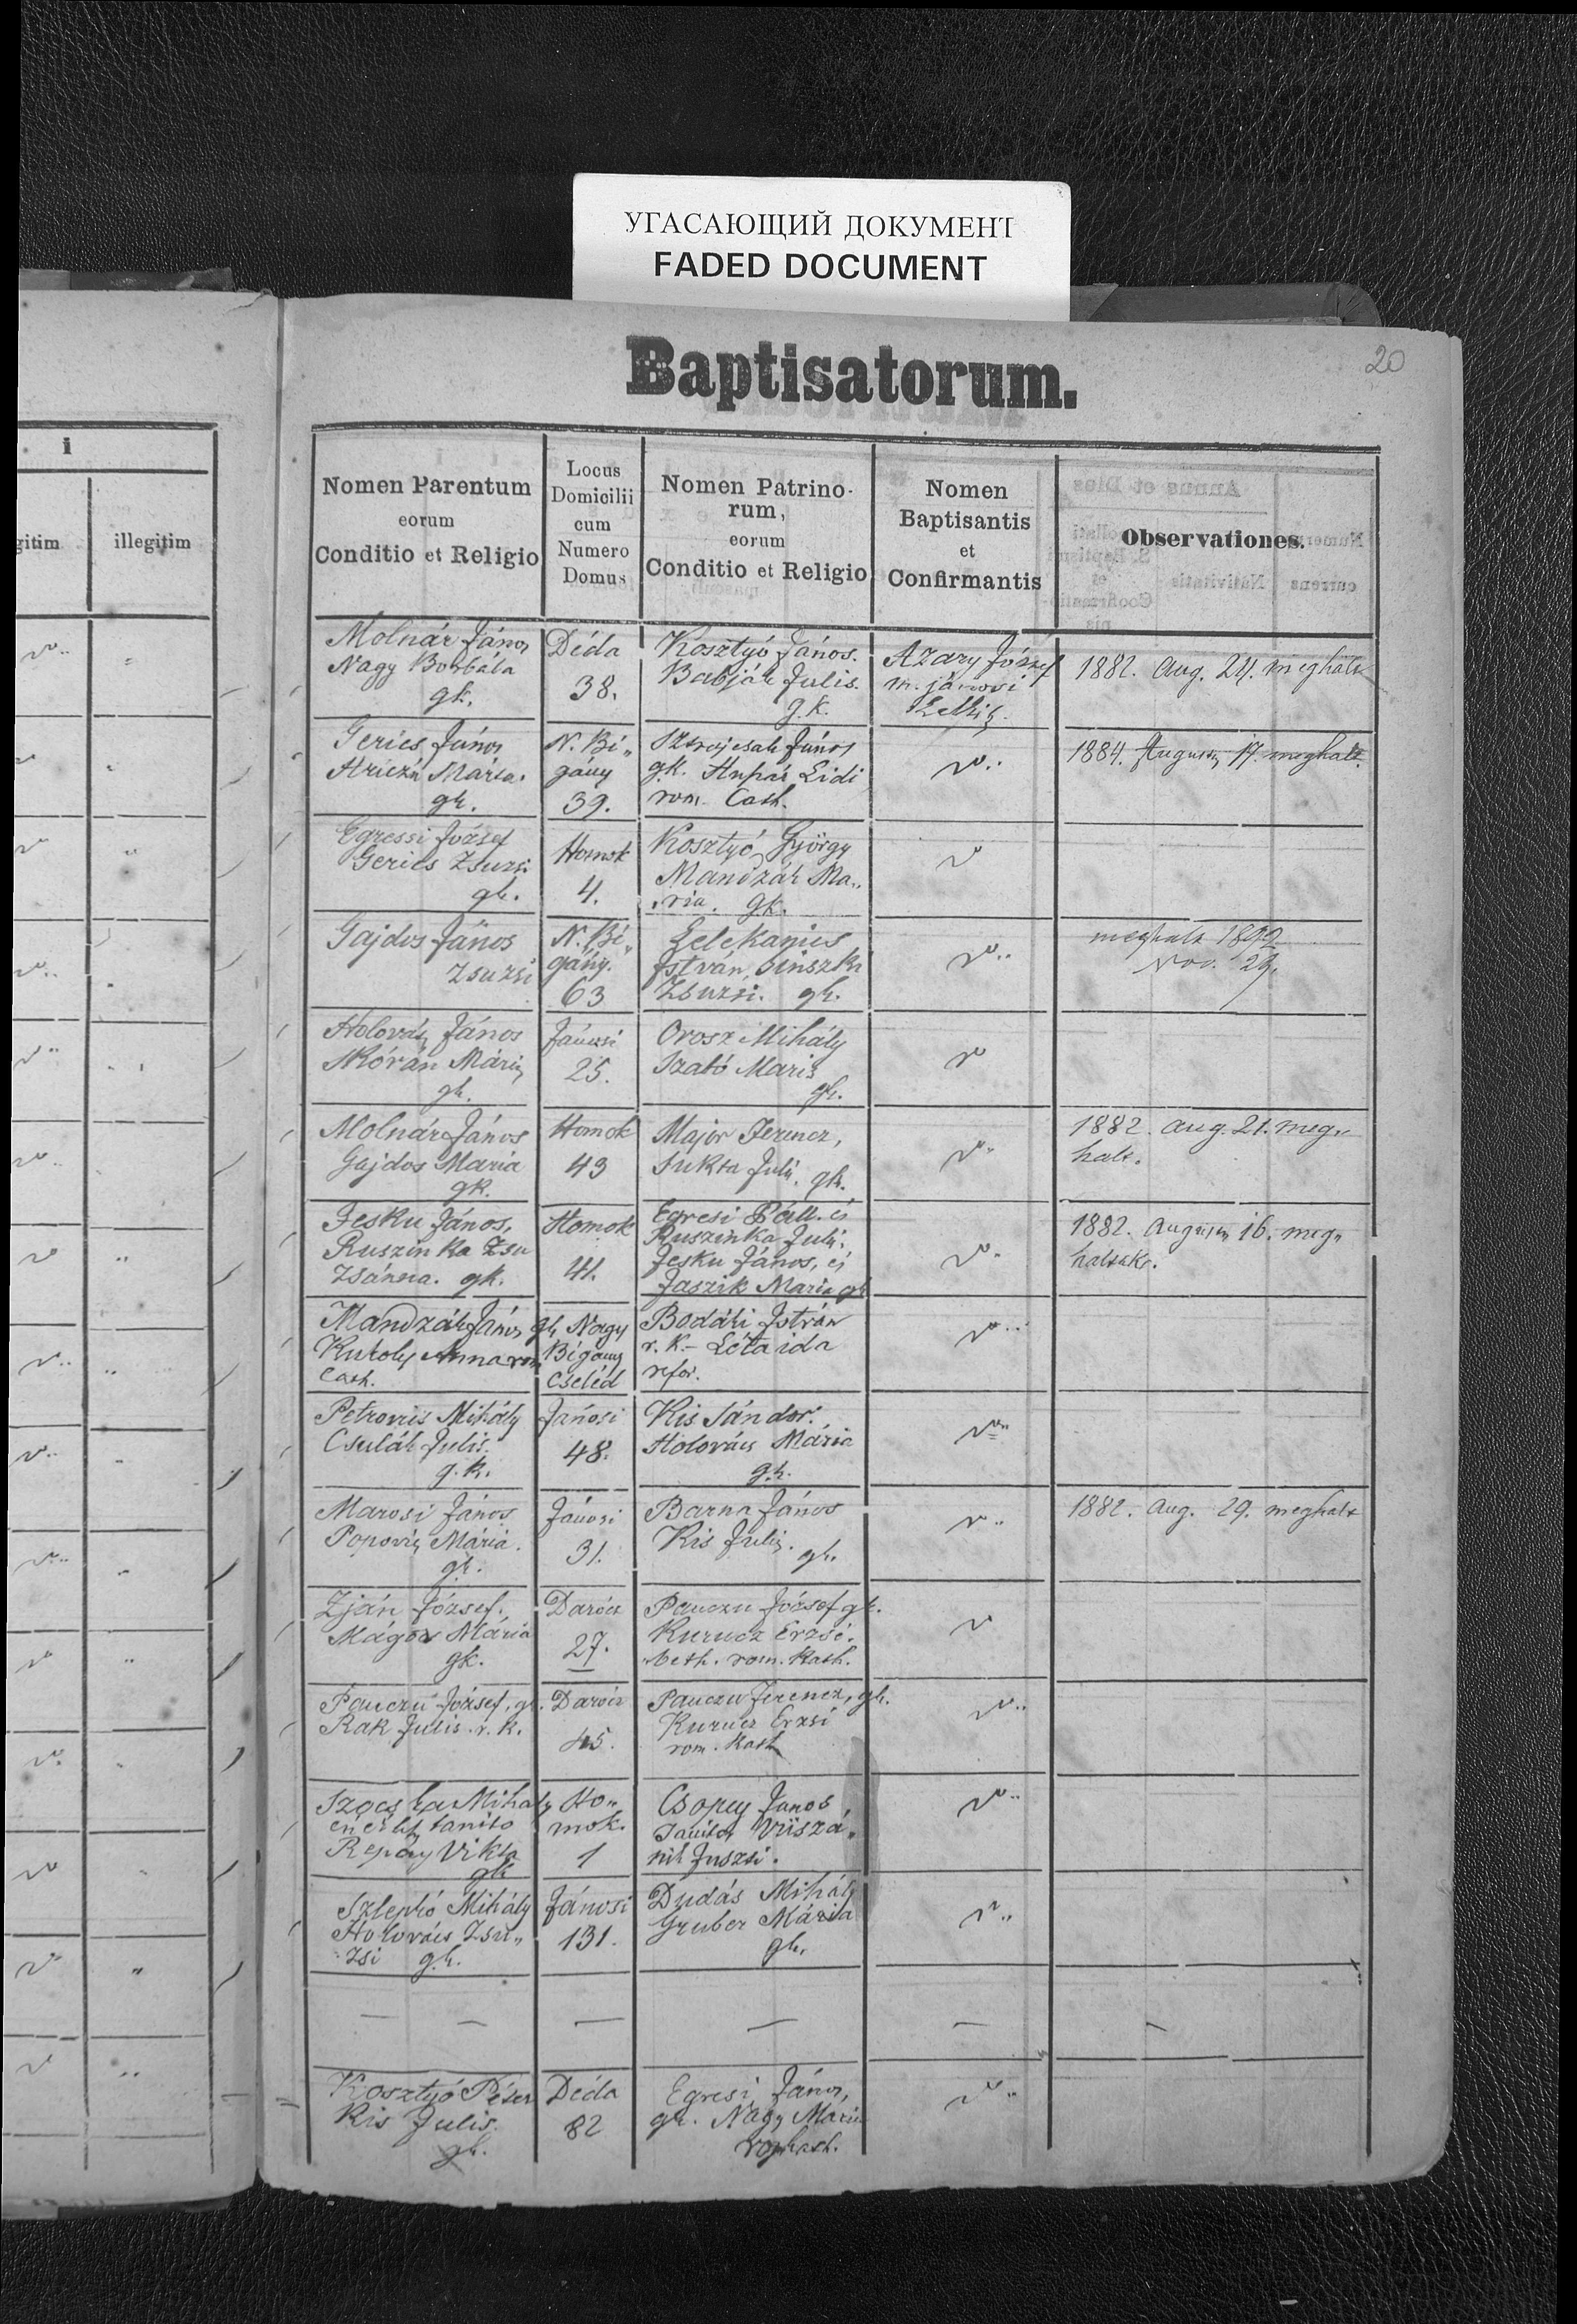 УГАСАЮЩИЙ ДОКУМЕНТ
FADED DOCUMENT
Baptisatorum.
20
i
gitim
illegitim
Nomen Parentum
eorum
Conditio et Religio
Locus
Domicilii
cum
Numero
Domus
Nomen Patrino-
rum,
eorum
Conditio et Religio
Nomen
Baptisantis
et
Confirmantis
Observationes.
Molnár János
Nagy Borbála
gk.
Déda
38.
Kosztyó János.
Babják Julis.
g.k.
Azary József
m. jánosi
1882. Aug. 24. meghalt
Gerics János
Hriczu Mária.
gk.
N. Bé„
gány
39.
János
gk. Hupár Lidi
rom. Cath.
1884. Augustus 17. meghalt.
Egressi József
Gerics Zsuzsi
gk.
Homok
4.
Kosztyó György
Mandzák Ma„
ria. gk.
Gajdos János
Zsuzsi
N. Bé„
gány.
63
Lelekanics
István,
Zsuzsi. gk.
meghalt 1899
Nov. 29.
Holovács János
Mária
gk.
Jánosi
25.
Orosz Mihály
Szabó Maris
gk.
Molnár János
Gajdos Maria
gk.
Homok
43
Major Ferencz,
Sukta Juli. gk.
1882. aug. 21. meg„
halt.
Jesku János,
Ruszinka Zsu
zsánna. gk.
Homok
41.
Egresi Páll. és
Ruszinka Juli.
Jesku János, és
Jaszik Maria gk
1882. Augustus 16. meg„
haltak.
Mandzák János gk
Anna rom
Cath.
Nagy
Bégany
Cseléd
Bodáki István
r. k. - Léta ida
refor.
Petrovics Mihály
Csulák Julis.
g. k.
Jánosi
48.
Kis Sándor.
Holovács Mária
gk.
Marosi János
Popovics Mária.
gk.
Jánosi
31.
Barna János
Kis Julis. gk.
1882. Aug. 29. meghalt
Zján József.
Mágor Mária
gk.
Darócz
27.
Pauczu József gk.
Kurucz Erzsé.
beth. rom. Kath.
Pauczu József. gk.
Rak Julis. r. k.
Darócz
45.
Pauczu Ferencz, gk.
Kurucz Erzsi
rom. Kath
Mihály
tanito
Repáy Vikta
gk
Ho„
mok.
1
Csopey Janos
Tanitor
Juszsi.
Szlepkó Mihály
Holovács Zsu„
zsi gk.
Jánosi
131.
Dudás Mihály
Gruber Mária
gk.
Kosztyó Péter
Kis Julis.
gk.
Déda
82
Egresi János,
gk. Nagy Maria
rom kath.